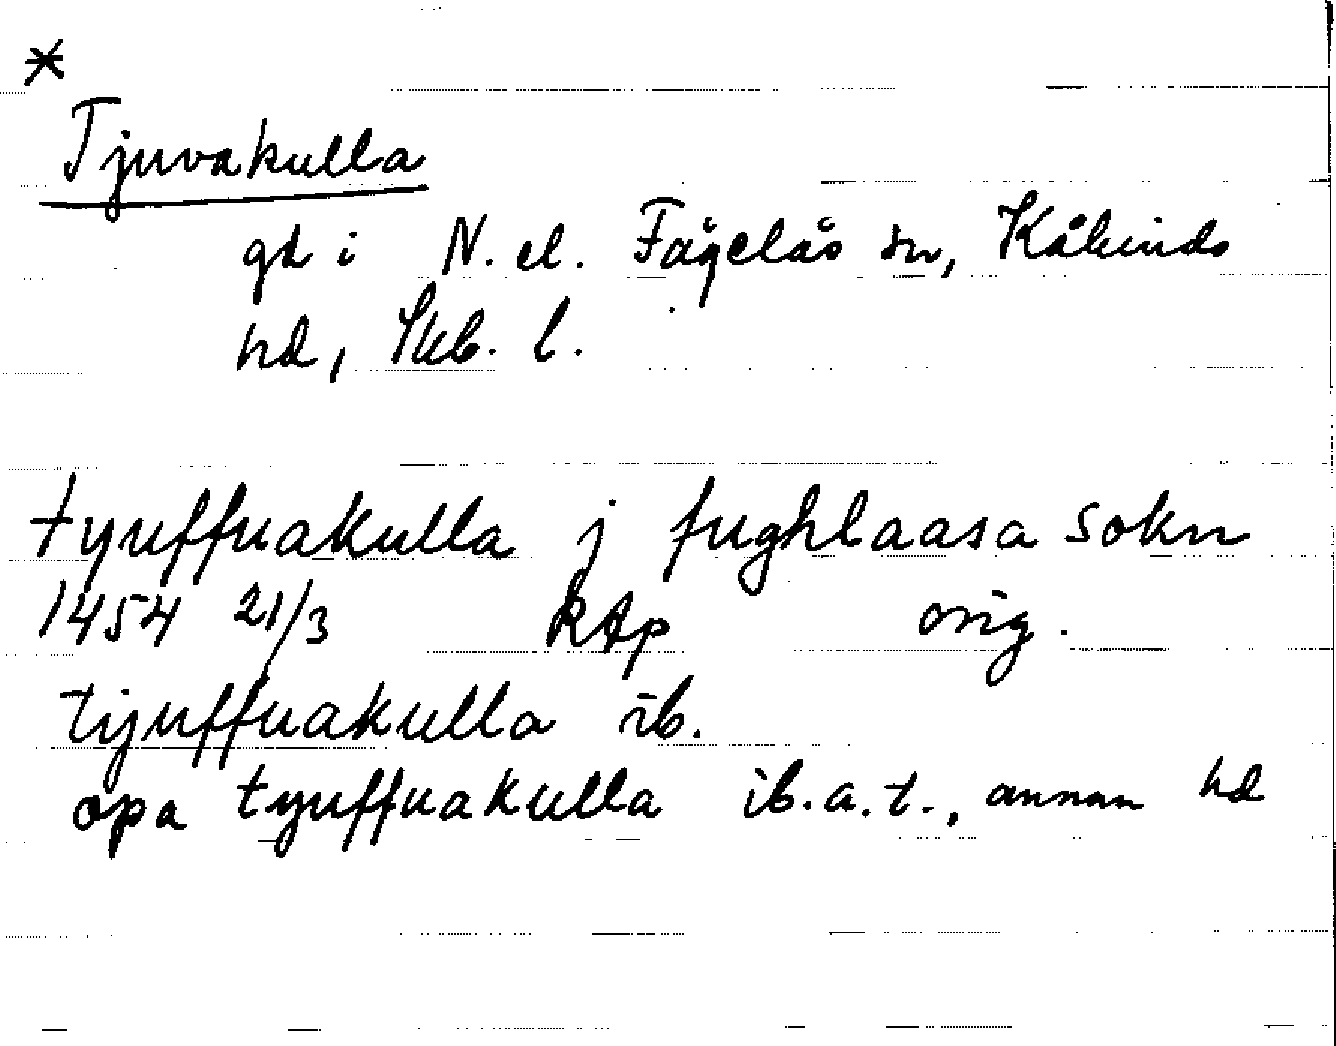 *
Tjuvakulla
gd i N. el. Fågelås sn, Kåkinds
hd, Skb. l.
tyuffuakulla j fughlaasa sokn
1454 21/3 RAp orig.
tijuffuakulla ib.
opa tyuffuakulla ib. a. t., annan hd